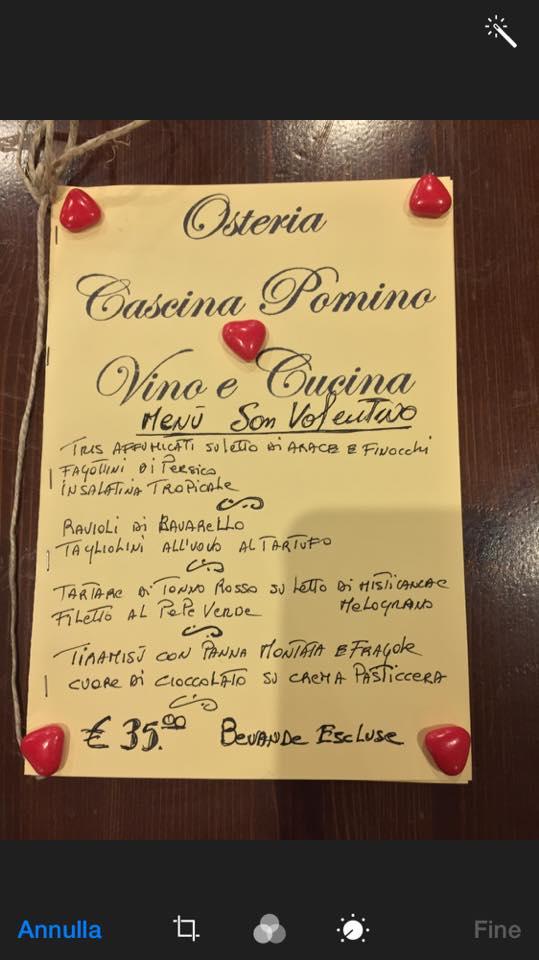 Osteria
Cascina Pomino
Vino e Cucina
MENÙ SAN VALENTINO
TRIS AFFUMICATI SU LETTO DI ARACE E FINOCCHI
FAGOTTINI DI PERSICO
INSALATINA TROPICALE
RAVIOLI DI BAVARELLO
TAGLIOLINI ALL'UOVO AL TARTUFO
TARTARE DI TONNO ROSSO SU LETTO DI MISTICANZA E
FILETTO AL PEPE VERDE MELOGRANO
TIRAMISÙ CON PANNA MONTATA E FRAGOLE
CUORE DI CIOCCOLATO SU CREMA PASTICCERA
€ 35.00 BEVANDE ESCLUSE
Annulla Fine